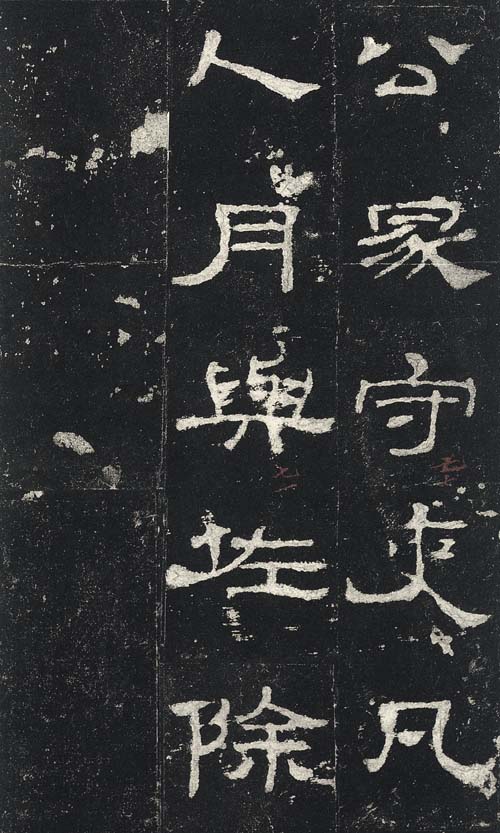 公冢守吏凡
人月與佐除